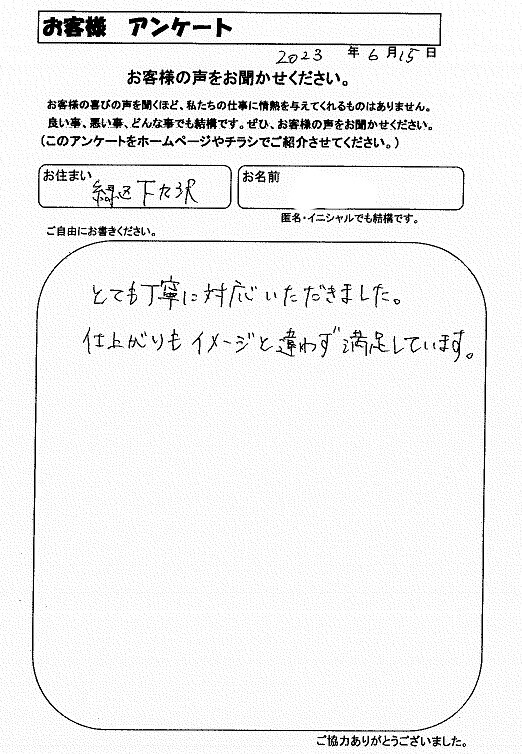 お客様 アンケート
2023 年 6 月 15 日
お客様の声をお聞かせください。
お客様の喜びの声を聞くほど、私たちの仕事に情熱を与えてくれるものはありません。
良い事、悪い事、どんな事でも結構です。ぜひ、お客様の声をお聞かせください。
(このアンケートをホームページやチラシでご紹介させてください。)
お住まい 緑区下九沢
お名前
匿名・イニシャルでも結構です。
ご自由にお書きください。
とても丁寧に対応いただきました。
仕上がりもイメージと違わず満足しています。
ご協力ありがとうございました。